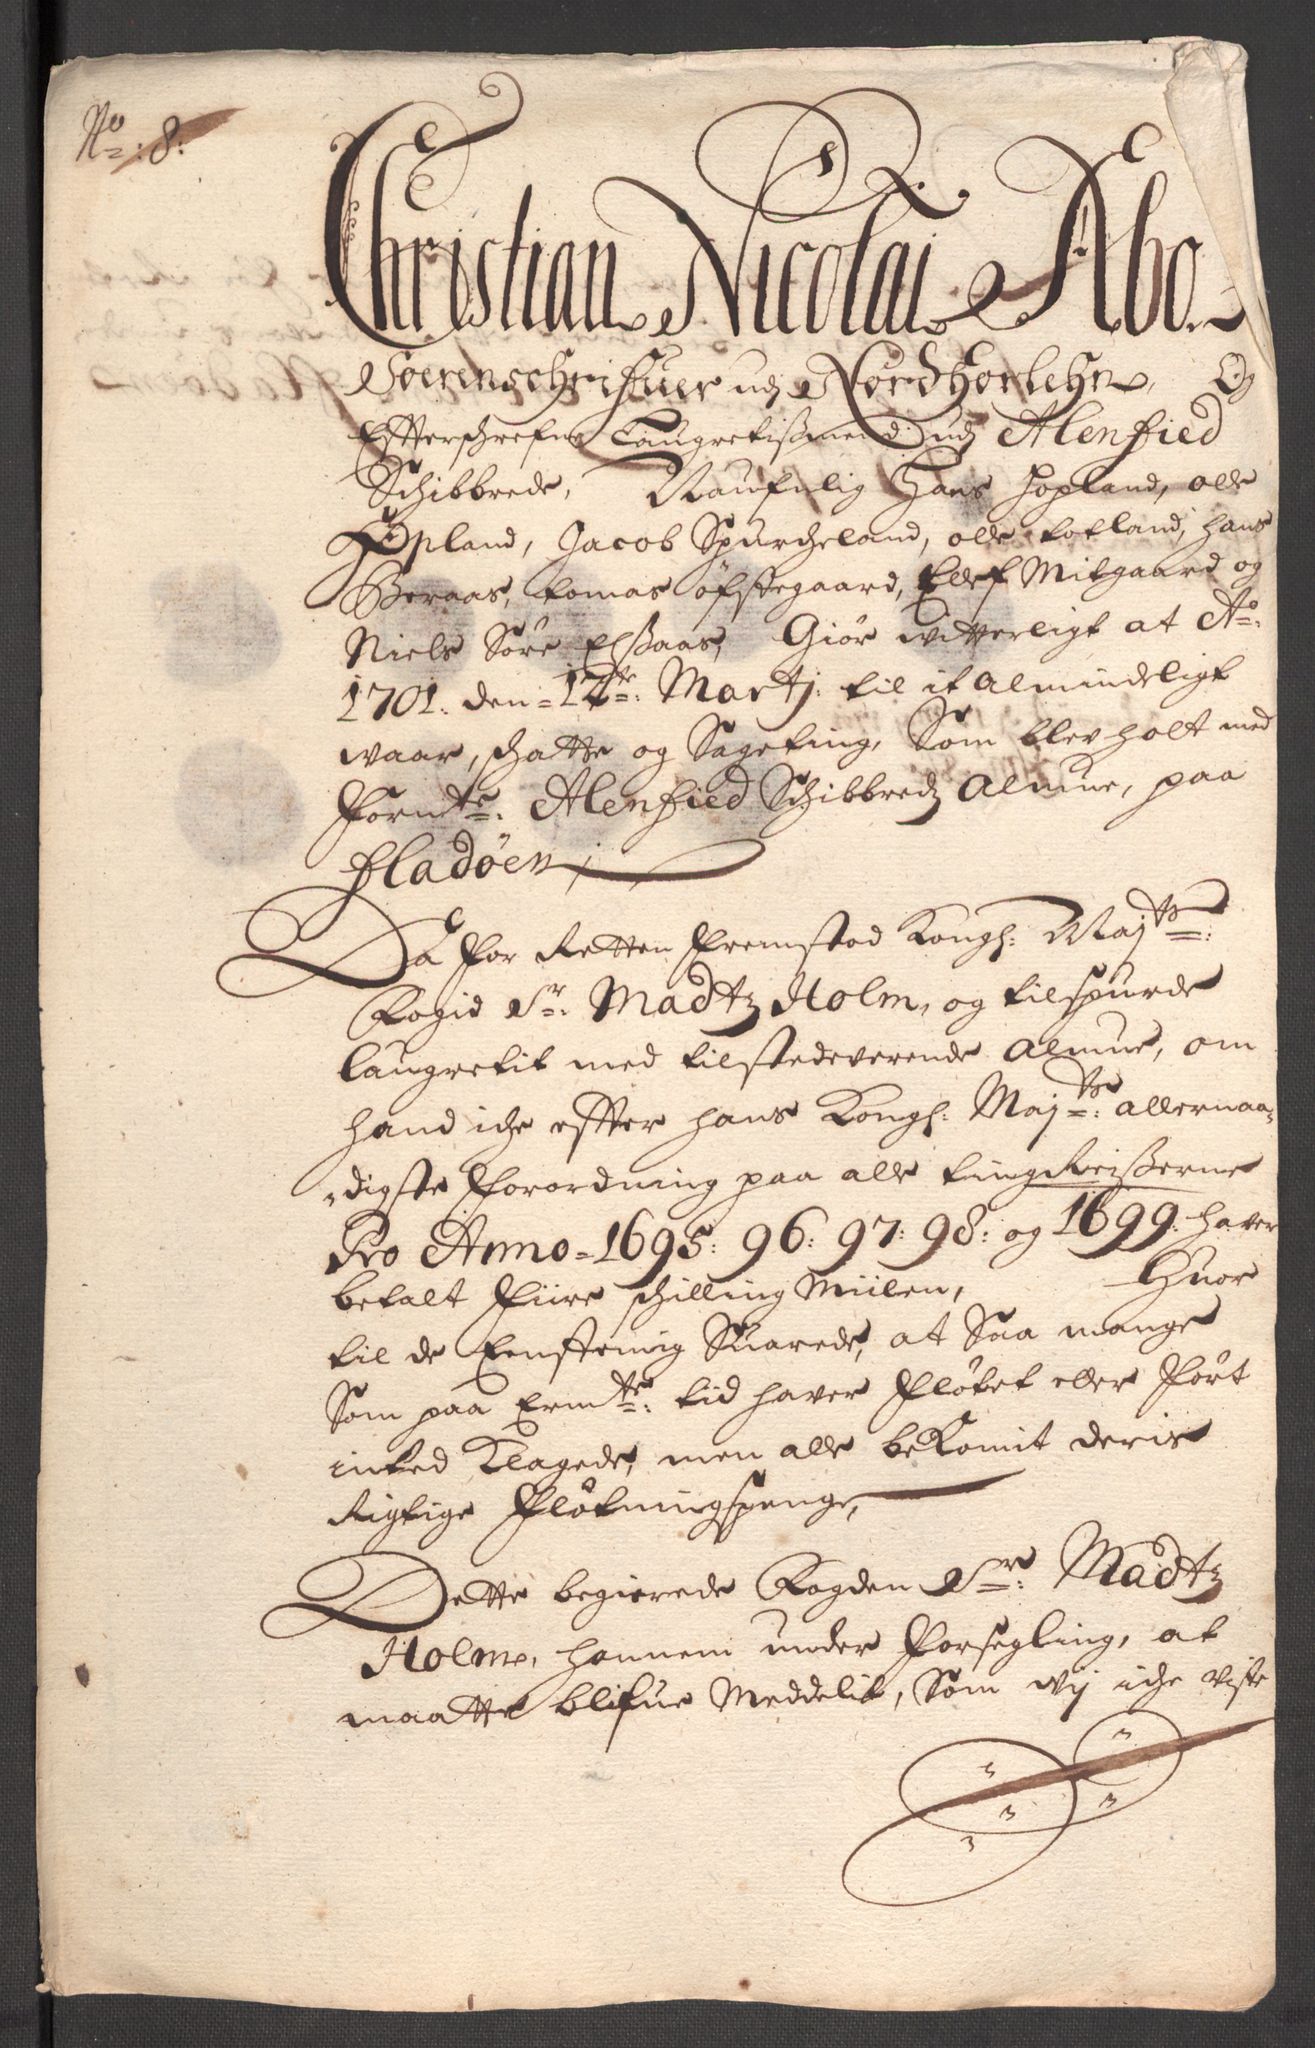 No: 8:
Christian Nicolai Abo
Soerenschrifuer udj Nordhorlehn, Og
Efftterschrefne Laugretismend udj Alenfied
Schibbrede, Naufnlig Hans Hopland, olle
Hopland, Jacob Spurcheland, olle totland, hans
Beraas, tomas öfstegaard, Ellef Mitgaard og
Niels Söre Elsaas, Giör witterligt at Ao:
1701. den 12te: Martj: til it almindeligt
waar, schatte og Sageting, Som blev holt med
fornte: Alenfied Schibbredz Almue, paa
fladöen,
Da for Retten fremstod Kongl: Majts:
Fogid Sr: Madtz Holm, og tilspurde
laugretit med tilstedeverende almue, om
hand iche effter hans Kongl: Majts: allernaa-
digste forordning paa alle tingReisserne
Pro Anno 1695: 96: 97: 98: og 1699: haver
betalt fiire schilling Miilen, Huor
til de Eenstemig Suarede, at Saa mange
Som paa Ermte: tid haver flötet eller fört
inted Klagede, men alle beKomit deris
Rigtige flötningspenge,
Dette begierede Fogden Sr: Madtz
Holm, hannem under forsegling, at
maatte blifue Meddelit, Som wij iche viste